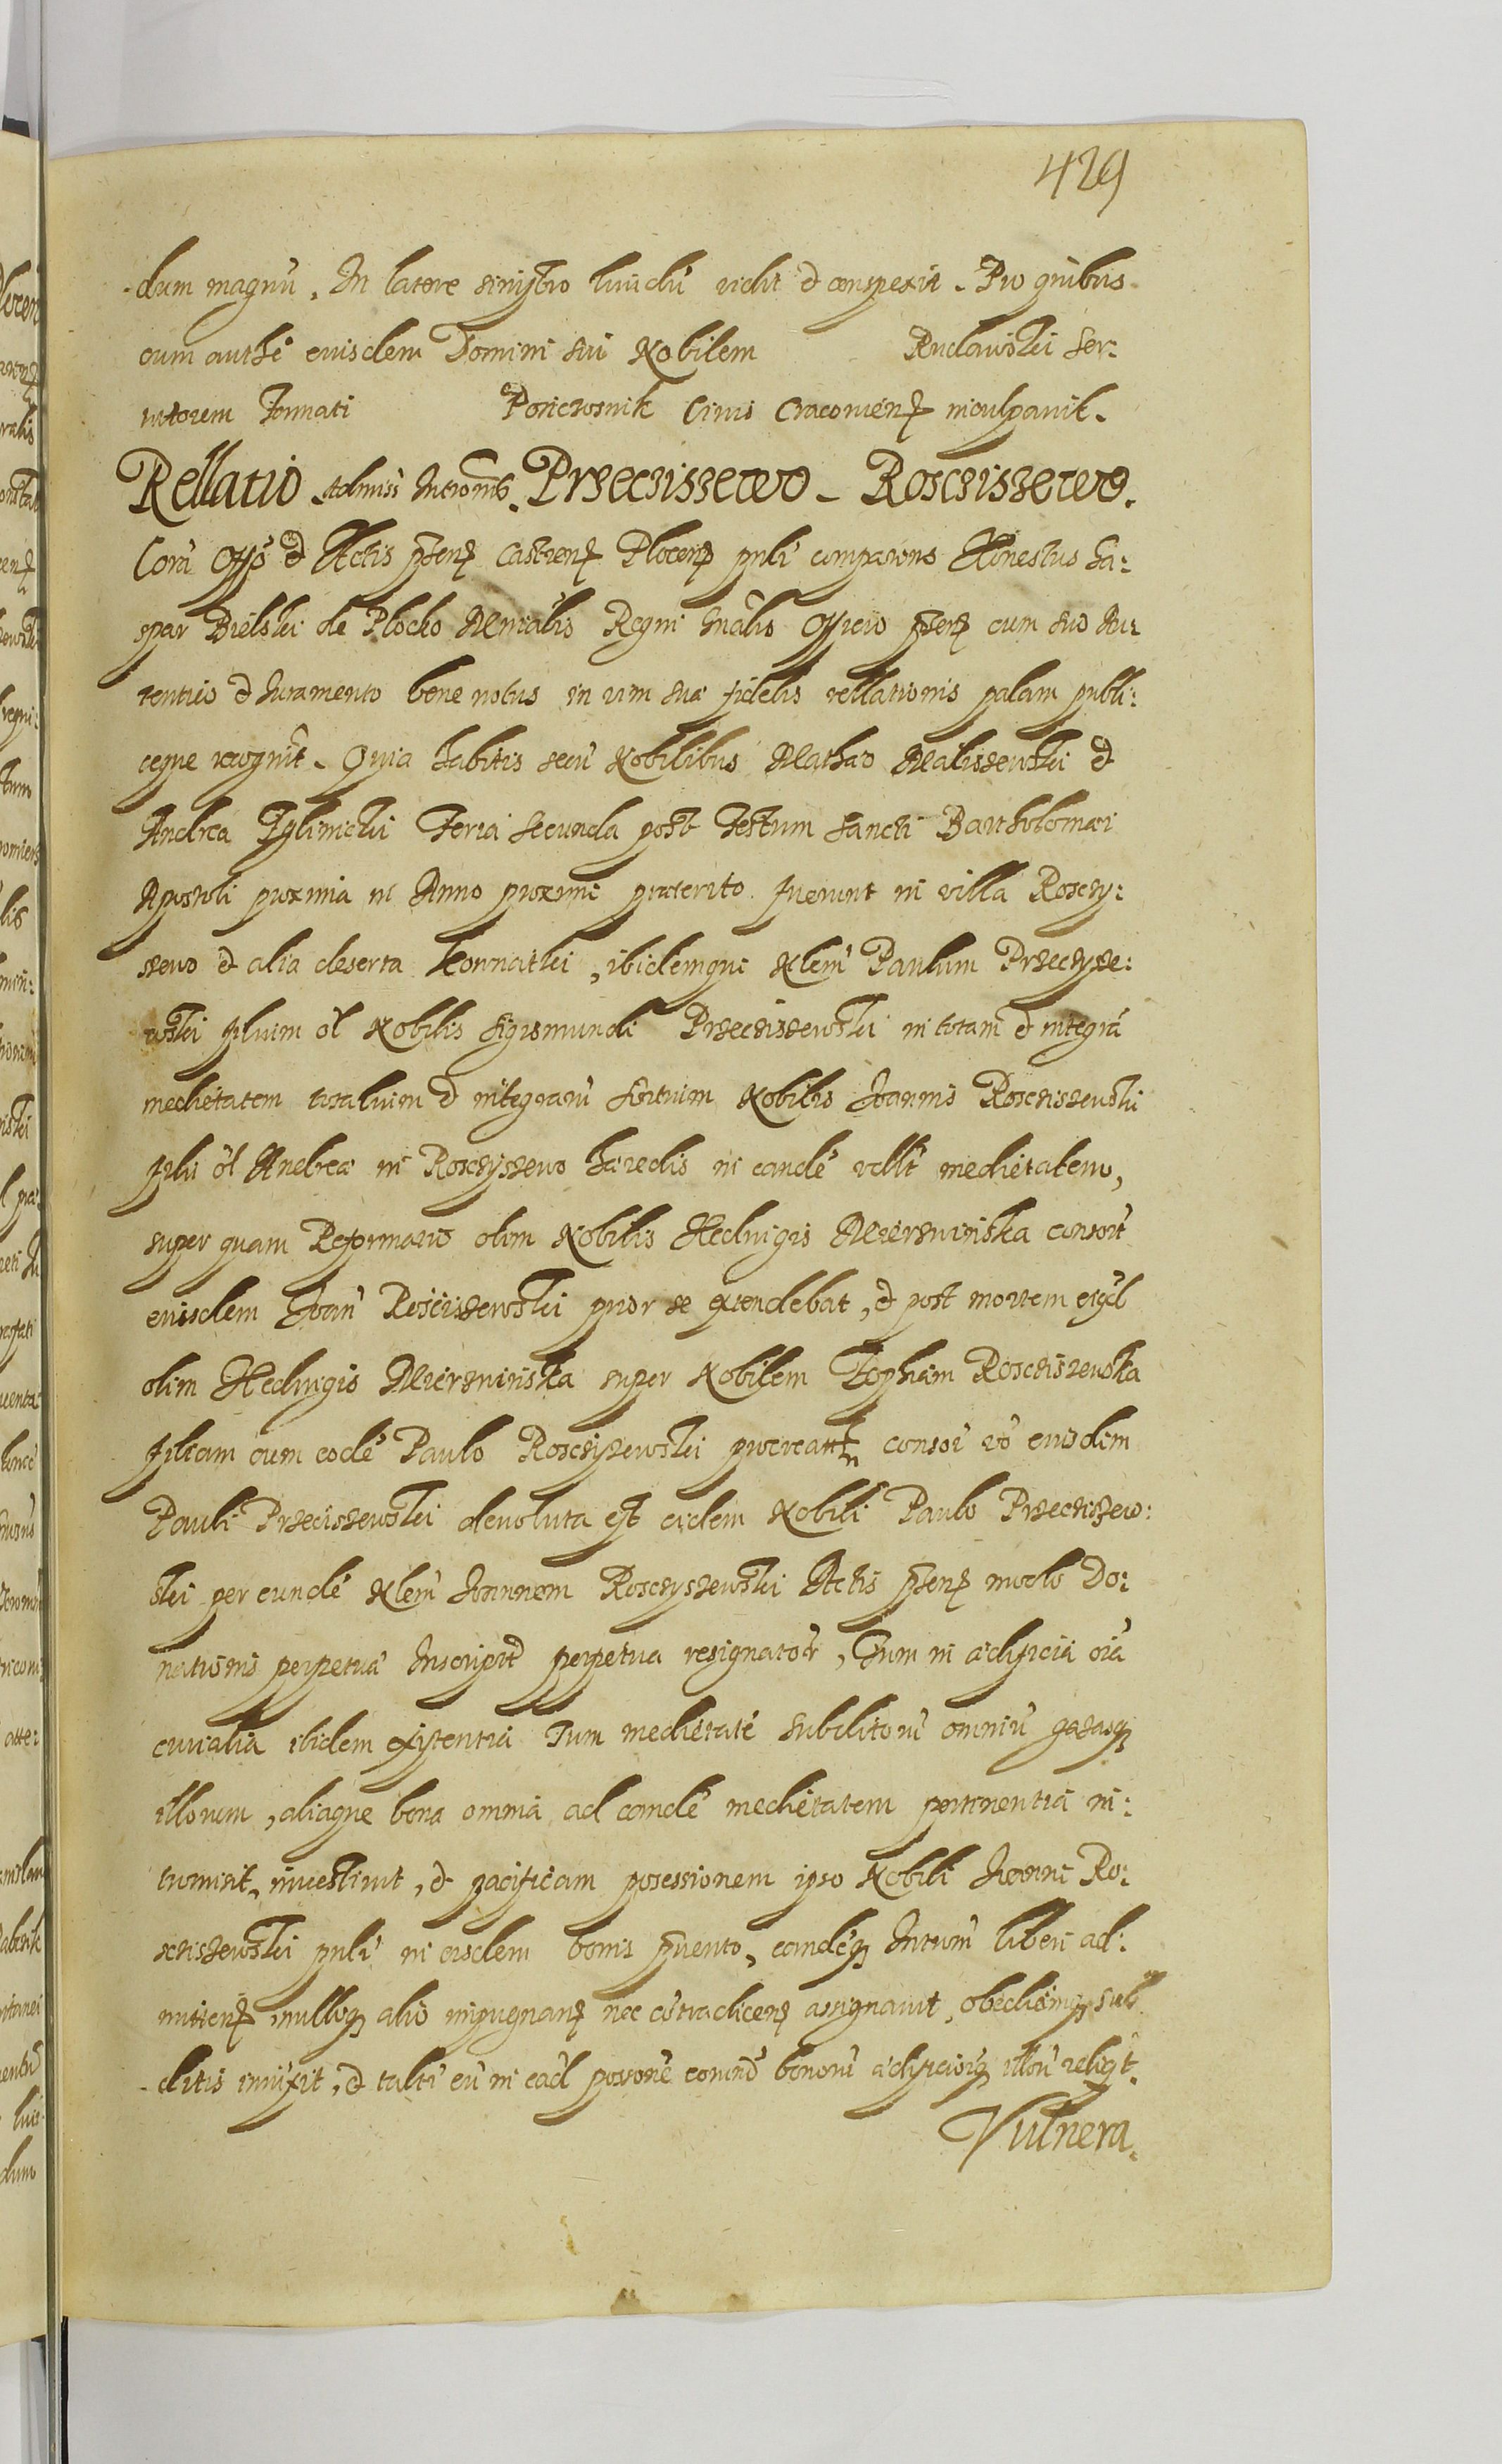 429
dum magnu. In latere sinistro liuidu vidit et conspexit. Pro quibus
eum authē euisdem Domini sui Nobilem Rudawski Ser:
uitorem Donnati Pasiczosnik Ciuis Cracouien inculpauit.
Rellatio Admissi Intromis. Przeciszewo Rosciszewo.
Corā Offo et Actis pnten Castren Plocen pnlr comparens Honestus Ga:
spar Bielski de Plocko Mnrialis Regni Gnālis Officio pnten cum suo Au:
tentico et Iuramento bene notus in vim suæ fidelis rellationis palam publi:
ceque recognit. Quia habitis secū Nobilibus Mathæo Maliszewski et
Andrea Glinicki Feria Secunda post Festum Sancti Bartholomæi
Apostoli proxima in Anno proxime præterito Fuerunt in villa Rosczy:
szewo et alia deserta Konnatki, ibidemque Nlem Paulum Przeczysze:
wski filium ol Nobilis Sigismundi Przecziszewski in totam et integrā
medietatem totalium et integrarū Sortium Nobilis Ioannis Rosciszewski
filii ol Andreæ in Rosczyszewo hæredis in eandē vallt medietatem,
super quam Reformatio olim Nobilis Hedvigis Mierzwinska consort
euisdem Ioan Rosciszewski prior se extendebat, et post mortem eiusd
olim Hedvigis Mierzwinska super Nobilem Zophiam Rosciszewska
filiam cum eodē Paulo Rosczyszewski procreatt consor vo euisdem
Pauli Przeciszewski devoluta est eidem Nobili Paulo Przecziszew:
ski per eundē Nlem Ioannem Rosczyszewski Actis pnten modo Do:
nationis perpetuæ Inscript perpetua resignator, Tum in ædificia oīa
curialia ibidem existentia Tum medietatē Subditorū omniū gazasq
illorum, aliaque bona omnia ad eandē medietatem pertinentia in:
tromisit, inuestiuit, et pacificam possessionem ipso Nobili Ioanni Ro:
scziszewski pnlr in eisdem bonis pnvento, eandēq Intrōm libere ad:
mitten, nulloq alio inpugnan nec cōtradicen assignauit, obedientiamq sub
ditis iniunxit, et taliter eū in eād possone eorund bonorū ædificiorūq illorū reliqt.
Vulnera.